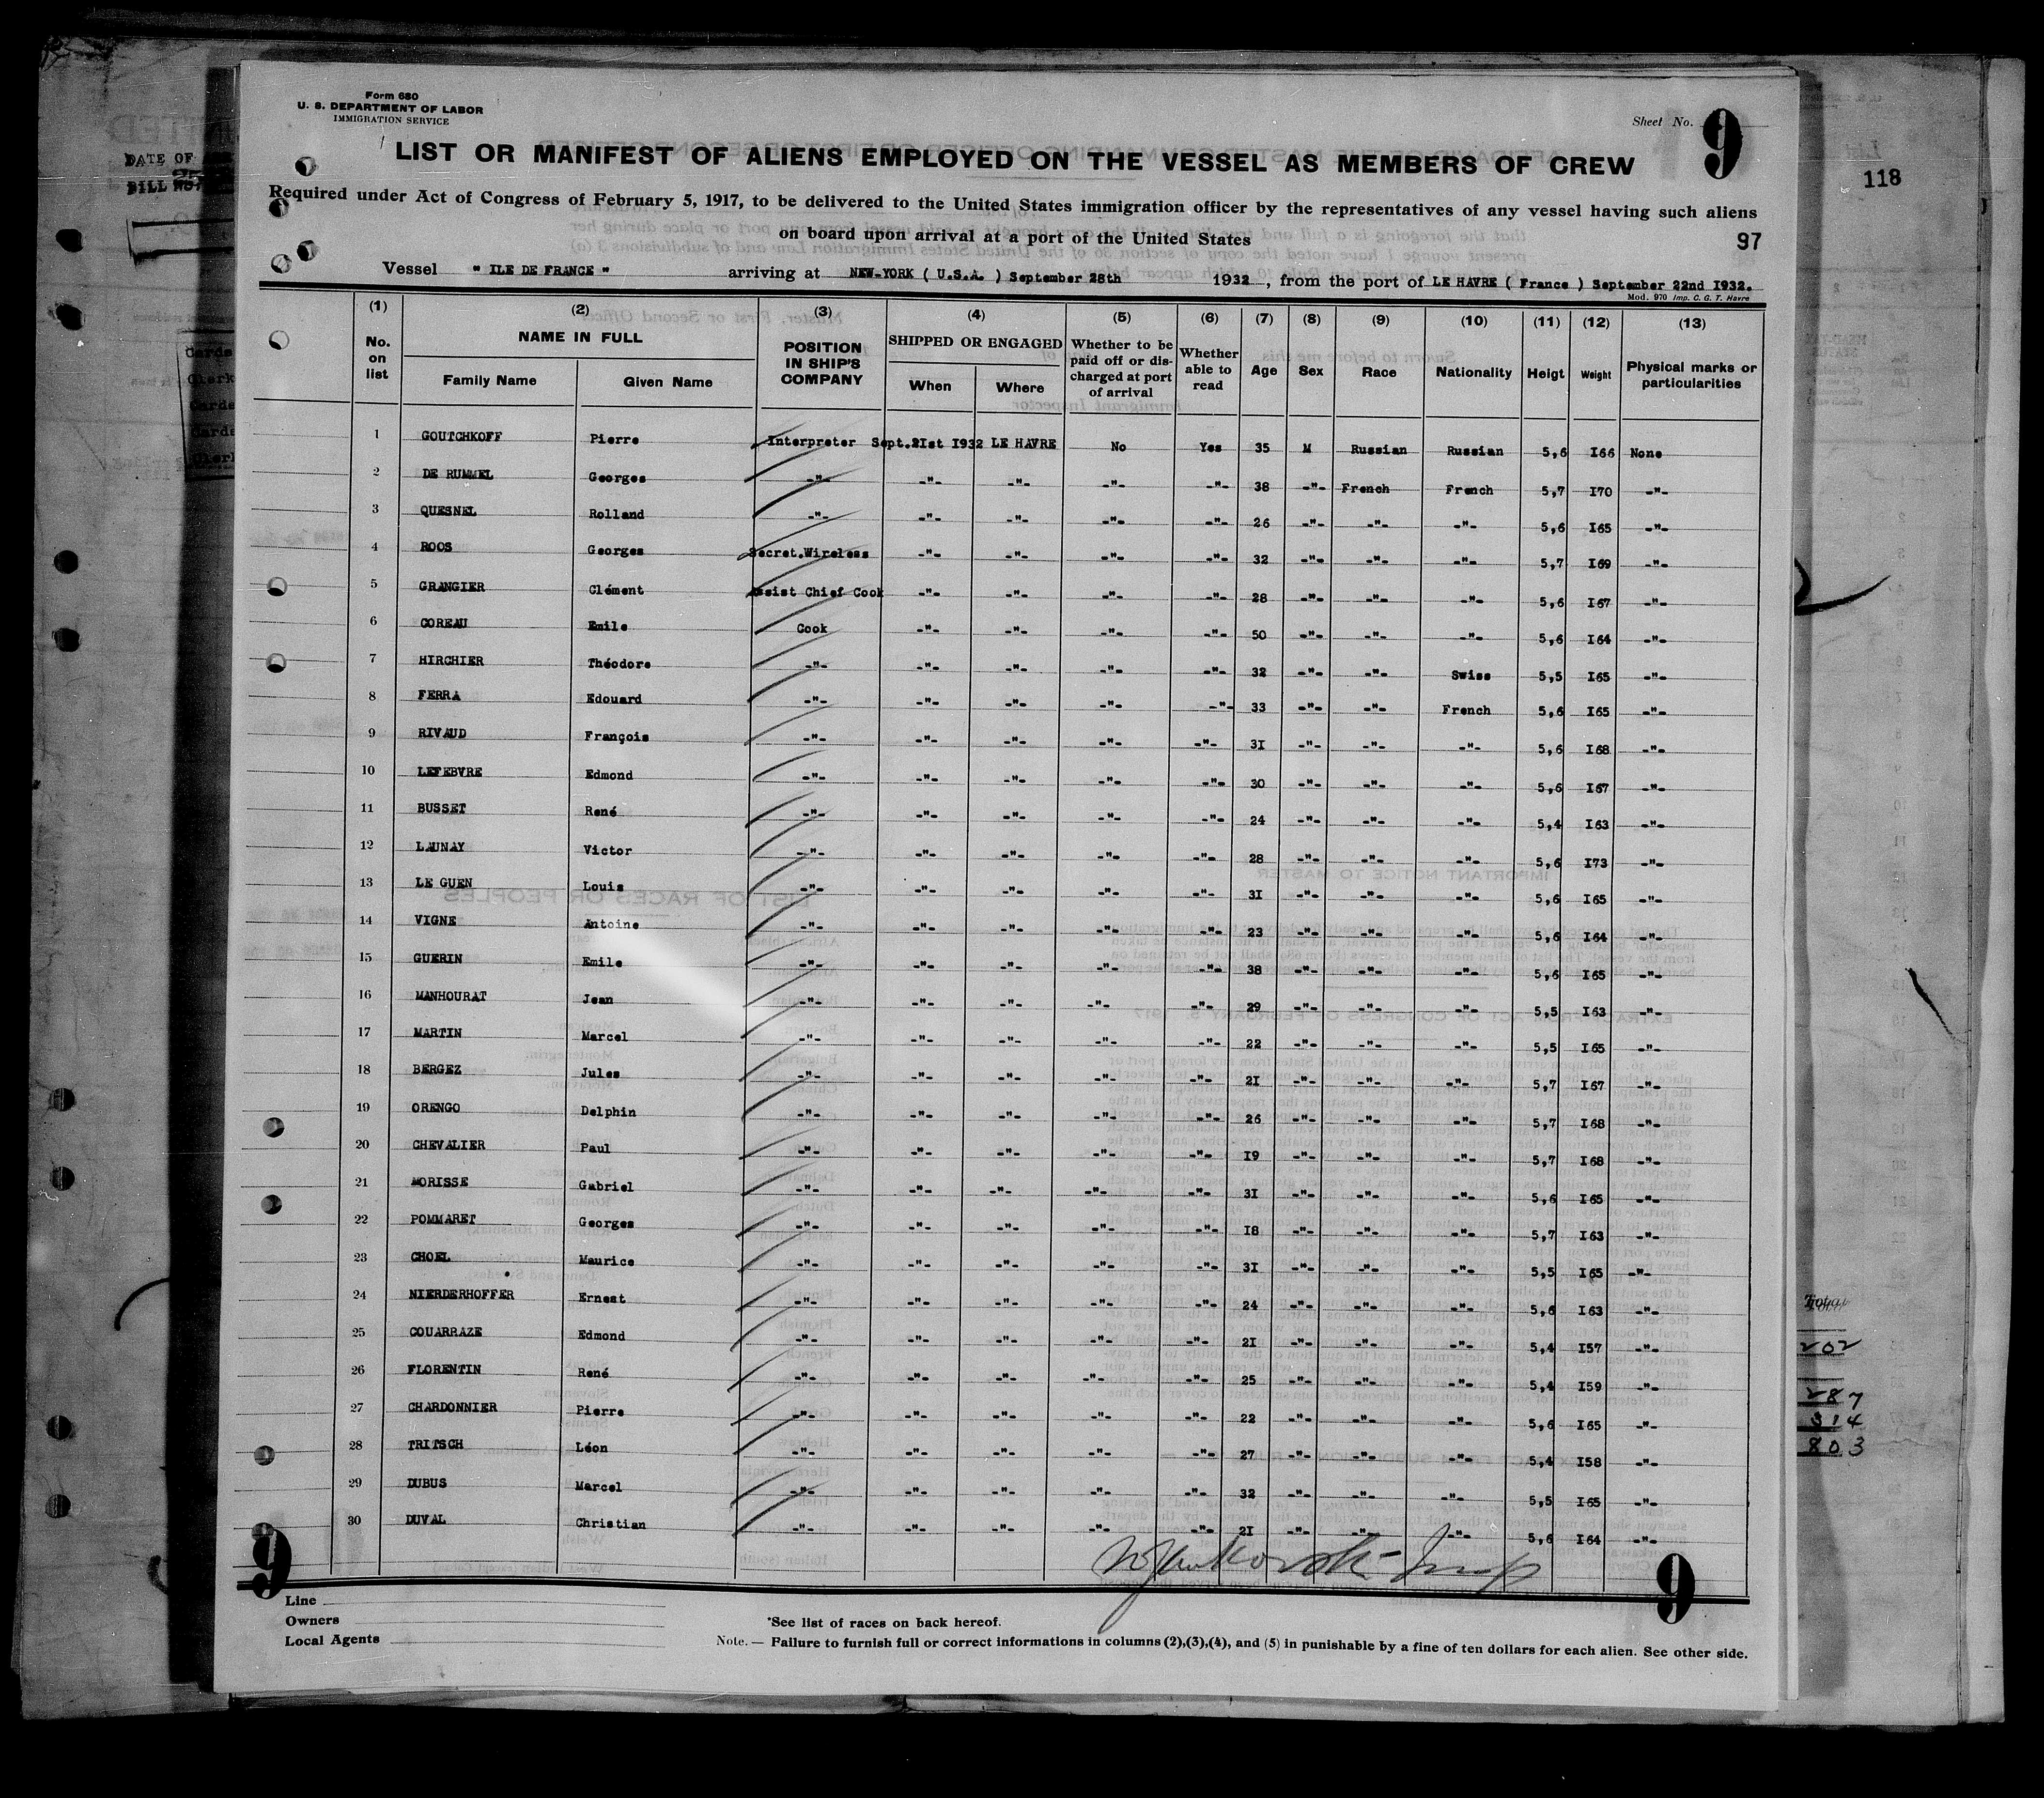 Form 680
U. S. DEPARTMENT OF LABOR
IMMIGRATION SERVICE
Sheet No. 9
LIST OR MANIFEST OF ALIENS EMPLOYED ON THE VESSEL AS MEMBERS OF CREW
Required under Act of Congress of February 5, 1917, to be delivered to the United States immigration officer by the representatives of any vessel having such aliens
on board upon arrival at a port of the United States
97
118
DATE OF
Vessel " ILE DE FRANCE " arriving at NEW-YORK ( U.S.A. ) September 28th 1932, from the port of LE HAVRE ( France ) September 22nd I932.
Mod. 970 Imp. C. G. T. Havre
(1) No. on list (2) NAME IN FULL Family Name Given Name (3) POSITION IN SHIP'S COMPANY (4) SHIPPED OR ENGAGED When Where (5) Whether to be paid off or discharged at port of arrival (6) Whether able to read (7) Age (8) Sex (9) Race (10) Nationality (11) Heigt (12) Weight (13) Physical marks or particularities
1 GOUTCHKOFF Pierre Interpreter Sept.2Ist I932 LE HAVRE No Yes 35 M Russian Russian 5,6 I66 None
2 DE RUMMEL Georges -"- -"- -"- -"- -"- 38 -"- French French 5,7 I70 -"-
3 QUESNEL Rolland -"- -"- -"- -"- -"- 26 -"- -"- -"- 5,6 I65 -"-
4 ROOS Georges Secret.Wireless -"- -"- -"- -"- 32 -"- -"- -"- 5,7 I69 -"-
5 GRANGIER Clément Assist Chief Cook -"- -"- -"- -"- 28 -"- -"- -"- 5,6 I67 -"-
6 COREAU Emile Cook -"- -"- -"- -"- 50 -"- -"- -"- 5,6 I64 -"-
7 HIRCHIER Théodore -"- -"- -"- -"- -"- 32 -"- -"- Swiss 5,5 I65 -"-
8 FERRA Edouard -"- -"- -"- -"- -"- 33 -"- -"- French 5,6 I65 -"-
9 RIVAUD François -"- -"- -"- -"- -"- 3I -"- -"- -"- 5,6 I68 -"-
10 LEFEBVRE Edmond -"- -"- -"- -"- -"- 30 -"- -"- -"- 5,6 I67 -"-
11 BUSSET René -"- -"- -"- -"- -"- 24 -"- -"- -"- 5,4 I63 -"-
12 LAUNAY Victor -"- -"- -"- -"- -"- 28 -"- -"- -"- 5,6 I73 -"-
13 LE GUEN Louis -"- -"- -"- -"- -"- 3I -"- -"- -"- 5,6 I65 -"-
14 VIGNE Antoine -"- -"- -"- -"- -"- 23 -"- -"- -"- 5,6 I64 -"-
15 GUERIN Emile -"- -"- -"- -"- -"- 38 -"- -"- -"- 5,6 I65 -"-
16 MANHOURAT Jean -"- -"- -"- -"- -"- 29 -"- -"- -"- 5,5 I63 -"-
17 MARTIN Marcel -"- -"- -"- -"- -"- 22 -"- -"- -"- 5,5 I65 -"-
18 BERGEZ Jules -"- -"- -"- -"- -"- 2I -"- -"- -"- 5,7 I67 -"-
19 ORENGO Delphin -"- -"- -"- -"- -"- 26 -"- -"- -"- 5,7 I68 -"-
20 CHEVALIER Paul -"- -"- -"- -"- -"- I9 -"- -"- -"- 5,7 I68 -"-
21 MORISSE Gabriel -"- -"- -"- -"- -"- 3I -"- -"- -"- 5,6 I65 -"-
22 POMMARET Georges -"- -"- -"- -"- -"- I8 -"- -"- -"- 5,7 I63 -"-
23 CHOEL Maurice -"- -"- -"- -"- -"- 3I -"- -"- -"- 5,5 I65 -"-
24 NIERDERHOFFER Ernest -"- -"- -"- -"- -"- 24 -"- -"- -"- 5,6 I63 -"-
25 COUARRAZE Edmond -"- -"- -"- -"- -"- 2I -"- -"- -"- 5,4 I57 -"-
26 FLORENTIN René -"- -"- -"- -"- -"- 25 -"- -"- -"- 5,4 I59 -"-
27 CHARDONNIER Pierre -"- -"- -"- -"- -"- 22 -"- -"- -"- 5,6 I65 -"-
28 TRITSCH Léon -"- -"- -"- -"- -"- 27 -"- -"- -"- 5,4 I58 -"-
29 DUBUS Marcel -"- -"- -"- -"- -"- 32 -"- -"- -"- 5,5 I65 -"-
30 DUVAL Christian -"- -"- -"- -"- -"- 2I -"- -"- -"- 5,6 I64 -"-
Total
202
287
314
803
9
9
Line
Owners
Local Agents
*See list of races on back hereof.
Note. — Failure to furnish full or correct informations in columns (2),(3),(4), and (5) in punishable by a fine of ten dollars for each alien. See other side.